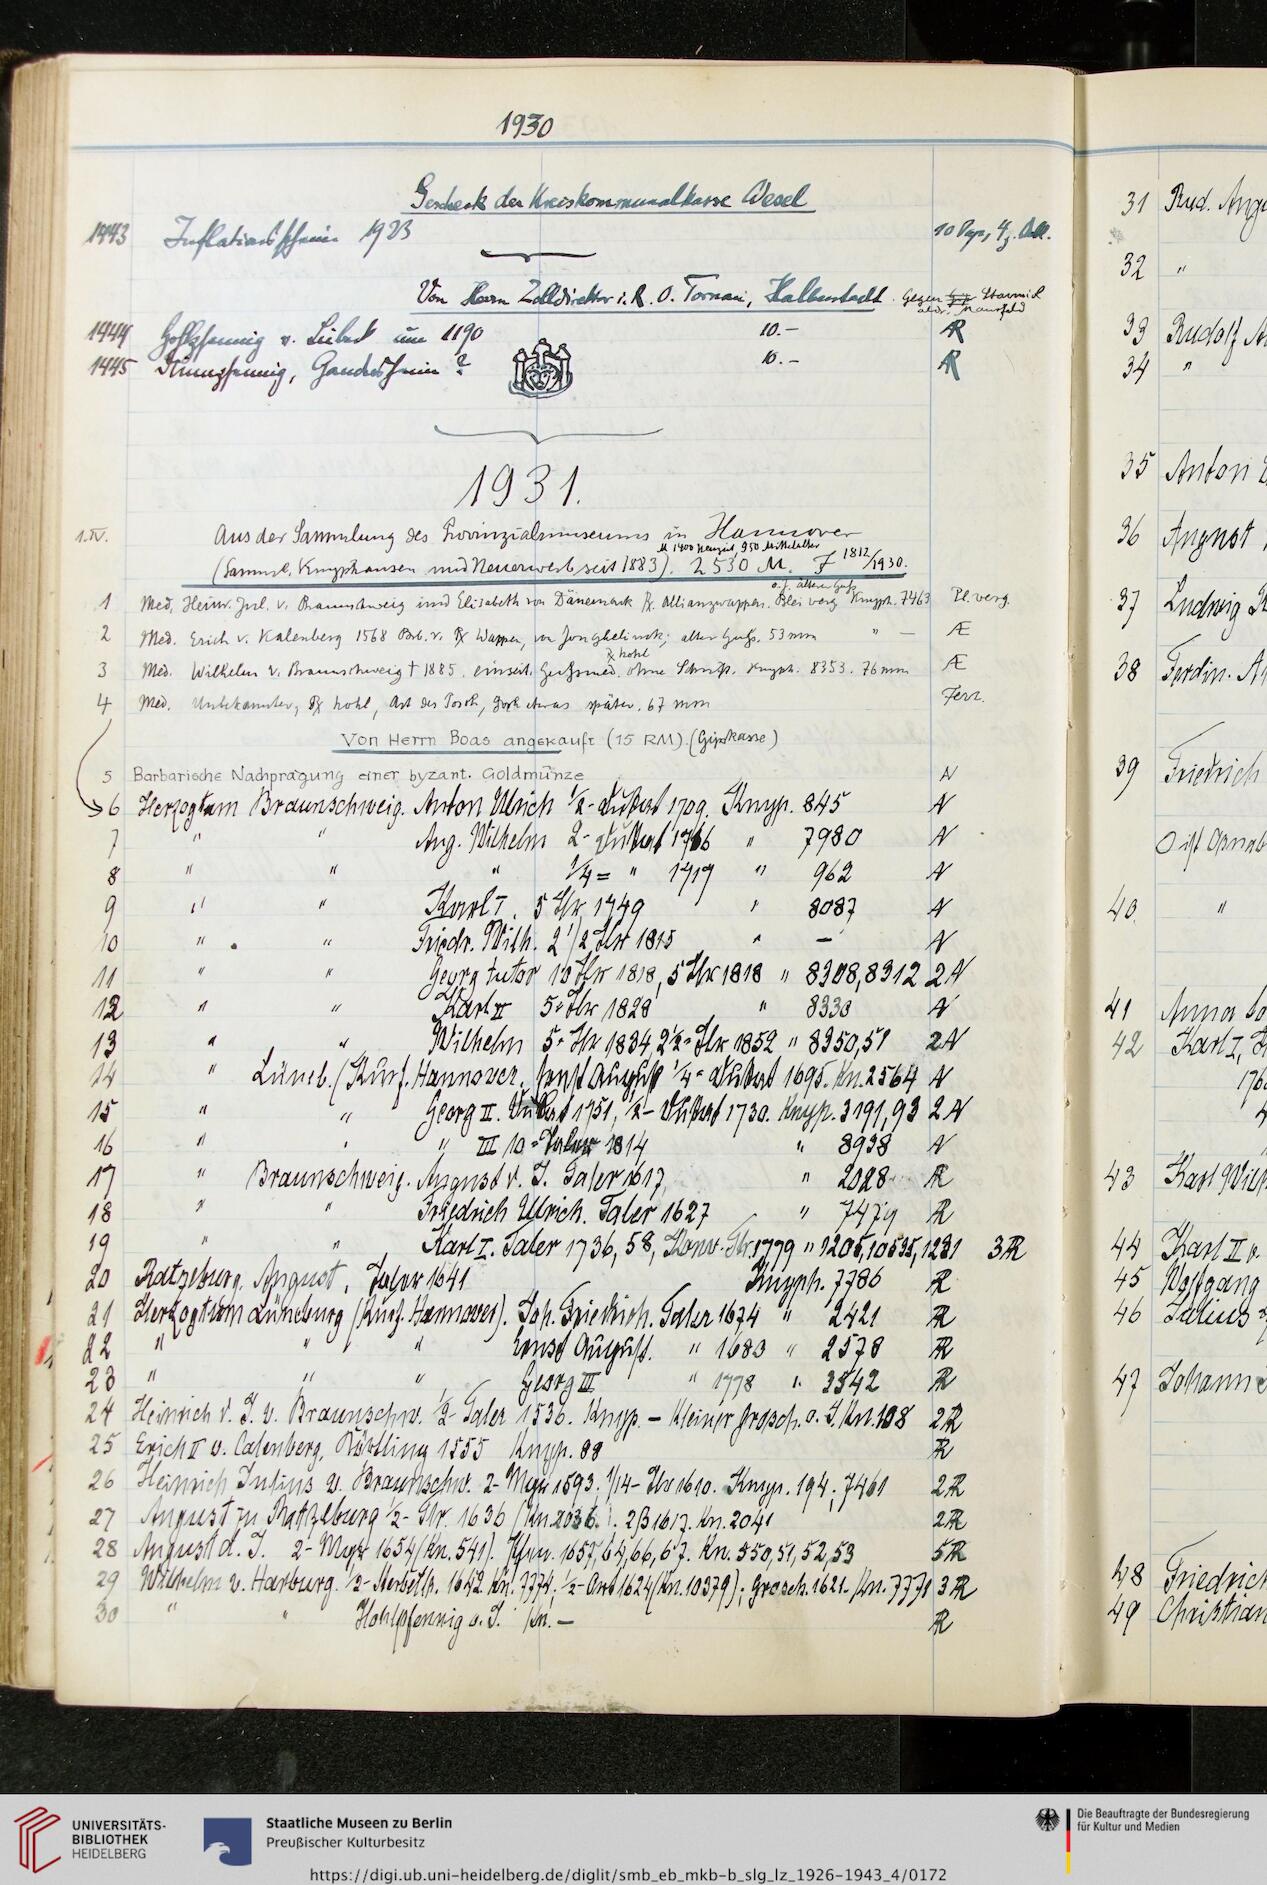 1930
Geschenk der Kreiskommunalkasse Wesel
1443 Inflationsschein 1923 10 Pap,
Von Herrn Zolldirektor i. R. O. Tornau, Halberstadt. Gegen
1444 Hohlpfennig v. Lübeck um 1190 10.– AR
1445 Dünnpfennig, Gandersheim? 10.– AR
1931.
1.IV. Aus der Sammlung des Provinzialmuseums in Hannover
M 1400 Neuzeit, 950 Mittelalter
(Samml. Knyphausen und Neuerwerb seit 1883). 2530 M. 1812/1930.
o. J. älterer Guß
1 Med. Heinr. Jul. v. Braunschweig und Elisabeth von Dänemark Rf. Allianzwappen. Blei verg. Knyph. 7463 Pl. verg.
2 Med. Erich v. Kalenberg 1568 Brb. v. Rf Wappen, von Jonghelinck; alter Guß. 53 mm " – Æ
Rf hohl
3 Med. Wilhelm v. Braunschweig † 1885. einseit. Gußmed. ohne Schrift. Knyph. 8353. 76 mm Æ
4 Med. Unbekannter, Rf hohl, Art des doch etwas später. 67 mm Ferr.
Von Herrn Boas angekauft (15 RM). (Gipskasse)
5 Barbarische Nachprägung einer byzant. Goldmünze N
6 Herzogtum Braunschweig. Anton Ulrich 1/2-Dukat 1709. Knyp. 845 N
7 " " Aug. Wilhelm 2-Dukat 1716 " 7980 N
8 " " " 1/4= " 1719 " 962 N
9 " " Karl I. 5 Tlr 1749 " 8087 N
10 " " Friedr. Wilh. 2 1/2 Tlr 1815 " – N
11 " " Georg tutor 10 Tlr 1818, 5 Tlr 1818 " 8308, 8312 2 N
12 " " Karl II 5-Tlr 1828 " 8330 N
13 " " Wilhelm 5-Tlr 1834 2 1/2-Tlr 1852 " 8350,51 2 N
14 " Lüneb. (Kurf. Hannover. Ernst August 1/4-Dukat 1695. Kn. 2564 N
15 " " Georg II. Dukat 1751, 1/2-Dukat 1730. Knyp. 3191, 93 2 N
16 " " " III 10-Taler 1814 " 8938 N
17 " Braunschweig. August d. J. Taler 1617, " 2028 AR
18 " " Friedrich Ulrich. Taler 1627 " 7479 AR
19 " " Karl I. Taler 1736, 58, Konv. Tlr. 1779 " 1205, 10595, 1231 3 AR
20 Ratzeburg. August, Taler 1641 Knyph. 7786 AR
21 Herzogtum Lüneburg (Kurf. Hannover). Joh. Friedrich. Taler 1674 " 2421 AR
22 " " " Ernst August. " 1683 " 2578 AR
23 " " " Georg III " 1778 " 3542 AR
24 Heinrich d. J. v. Braunschw. 1/2-Taler 1536. Knyp. – Kleiner Grosch. o. J. Kn. 108 2 AR
25 Erich II v. Calenberg, Körtling 1555 Knyp. 88 AR
26 Heinrich Julius v. Braunschw. 2-Mgr 1593. 1/14-Tlr 1610. Knyp. 194; 7461 2 AR
27 August zu Ratzeburg 1/2-Tlr. 1636 (Kn. 2036.). 2ß 1617. Kn. 2041 2 AR
28 August d. J. 2-Mgr 1654 (Kn. 541). 1657, 64, 66, 67. Kn. 550, 51, 52, 53 5 AR
29 Wilhelm v. Harburg. 1642. Kn. 7774; 1/2-Ort 1624 (Kn. 10379); Grosch. 1621. Kn. 7771 3 AR
30 " " Hohlpfennig o. J. Kn. – AR
31 Rud.
32 "
33 Rudolf
34 "
35 Anton
36 August
37 Ludwig
38 Ferdin.
39 Friedrich
40 "
41 Anna
42 Karl I,
43 Karl
44 Karl II v.
45 Wolfgang
46 Julius
47 Johann
48 Friedrich
49 Christian
UNIVERSITÄTS-
BIBLIOTHEK
HEIDELBERG
Staatliche Museen zu Berlin
Preußischer Kulturbesitz
Die Beauftragte der Bundesregierung
für Kultur und Medien
https://digi.ub.uni-heidelberg.de/diglit/smb_eb_mkb-b_slg_lz_1926-1943_4/0172